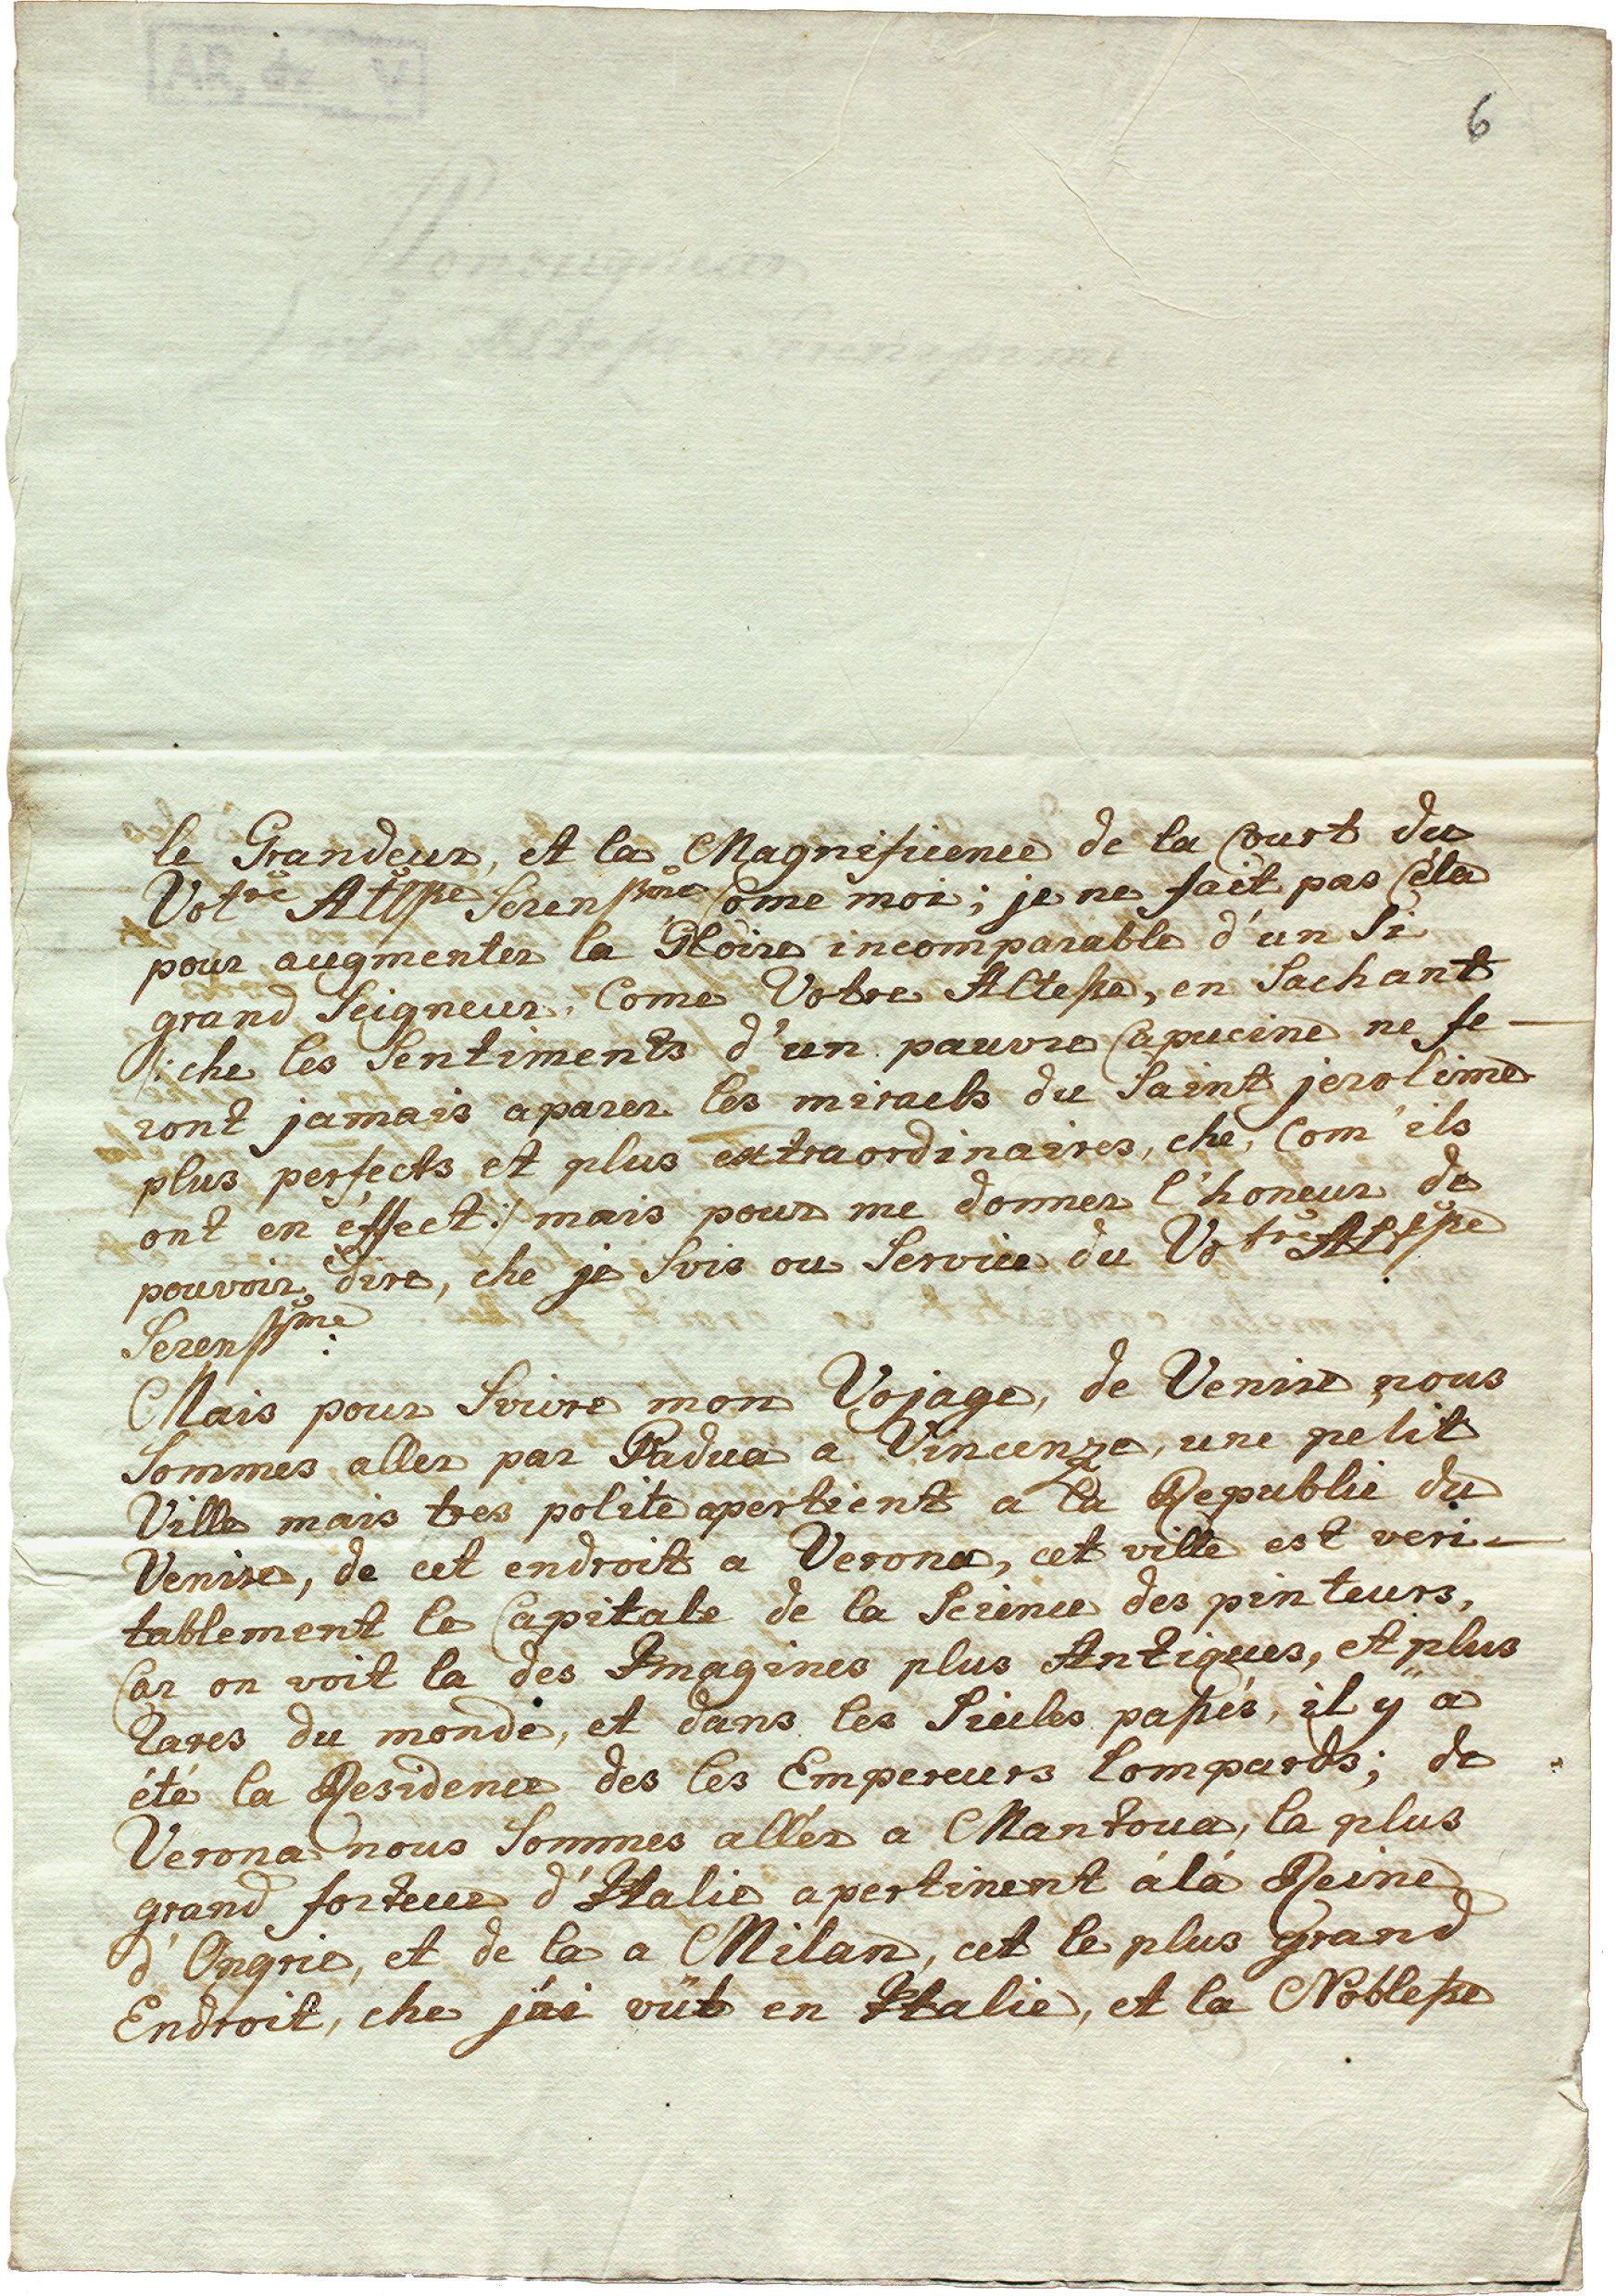 6
le Grandeur, et la Magnificence de la Court du
Votre Altsse Serenssme Come moi; je ne fait pas céla
pour augmenter la Gloire incomparable d'un Si
grand Seigneur, Come Votre Altesse, en Sachant
/: che les Sentiments d'un pauvre Capucine ne fe-
ront jamais aparer les miracls du Saint jerolime
plus perfects et plus extraordinaires, che, Com'ils
ont en éffect :/ mais pour me donner l'honeur de
pouvoir dire, che je Svis ou Service du Votre Altsse
Serenssme:
Mais pour Svivre mon Vojage, de Venise nous
Sommes aller par Padua a Vincenza, une petit
Ville mais tres polite apertient a la Republic du
Venise, de cet endroit a Verona, cet ville est veri-
tablement le Capitale de la Science des pinteurs,
Car on voit la des Imagines plus Antiques, et plus
rares du monde, et dans les Siecles passés, il y a
été la Residence des les Empereurs Lompards; de
Verona nous Sommes allér a Mantoua, la plus
grand fortece d'Italie apertinent á lá Reine
d'Ongrie, et de la a Milan, cet le plus grand
Endroit, che j'ai vüt en Italie, et la Noblesse